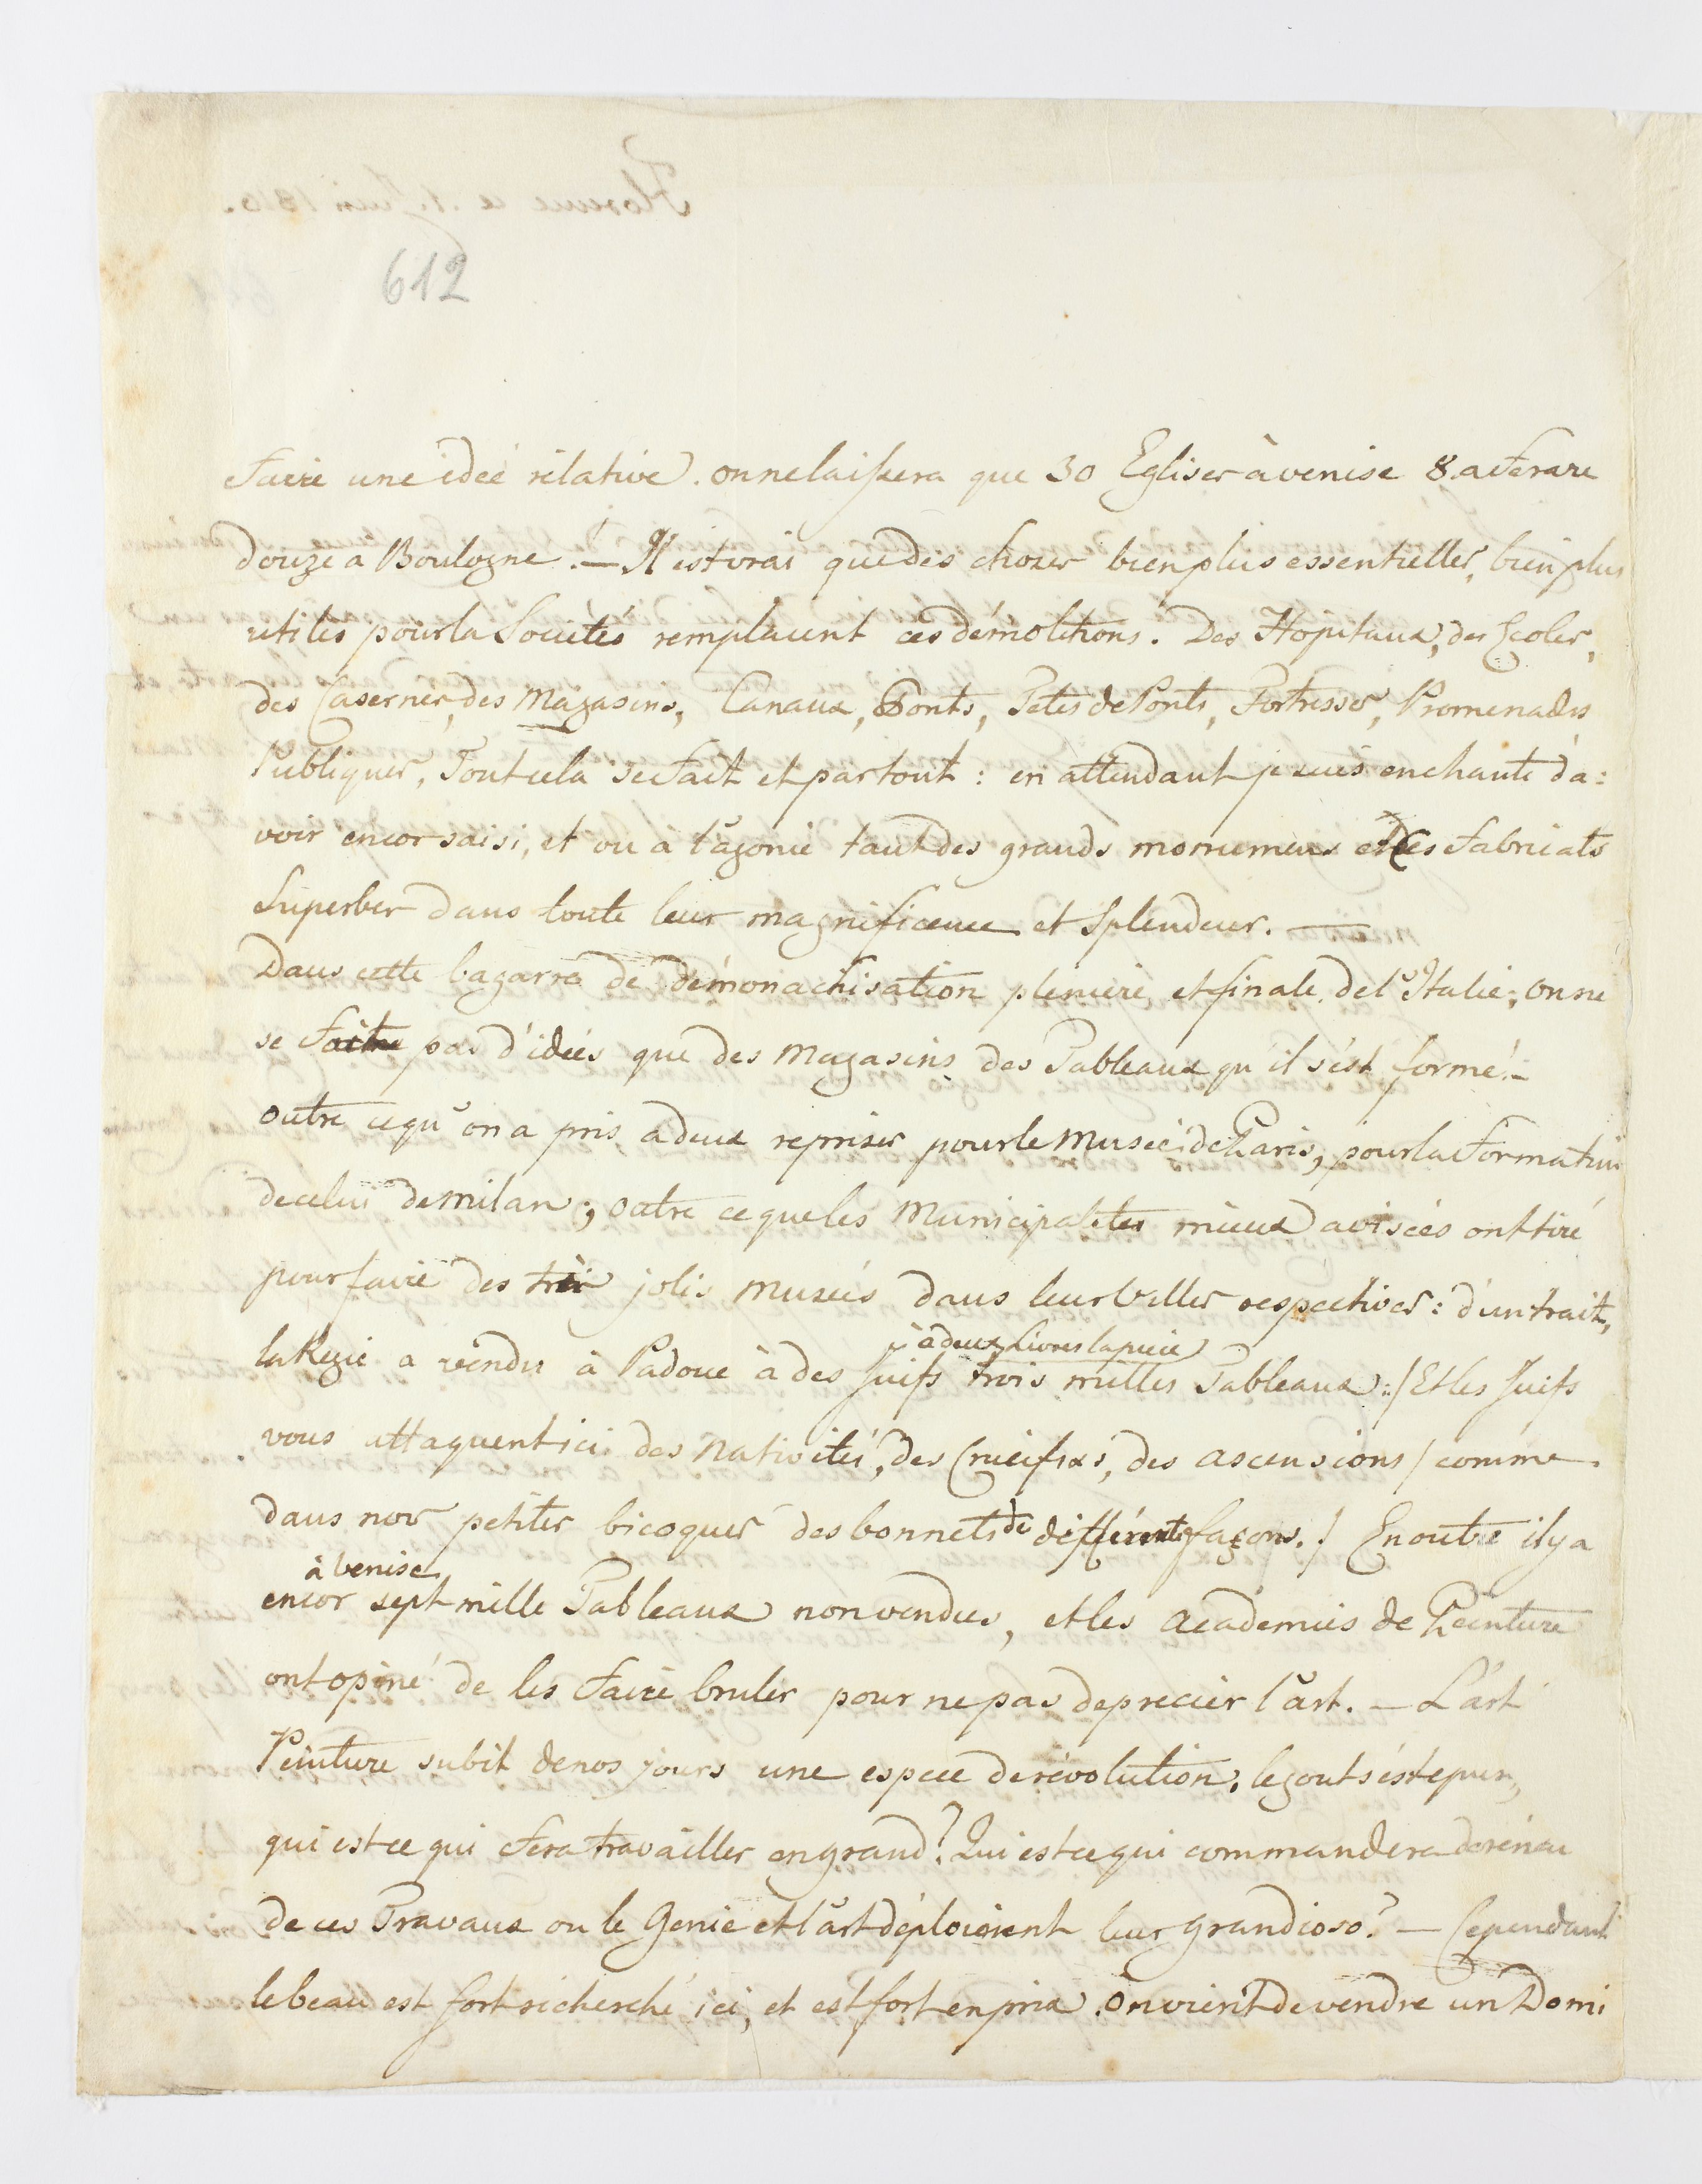 612
faire une ideé rélative. on ne laissera que 30 Eglises à venise 8. a Ferare
douze a Boulogne! — Il est vrai que des choses bien plus essentielles, bien plus
utiles pour la Societés remplacent ces démolitions. Des Hopitaux, des Ecoles,
des Casernes, des Magasins, Canaux, Ponts, Tetes de Ponts, Fortresses, Promenades
Publiques, Tout cela se fait et partout: en attendant je suis enchanté d'a:
voir encor saisi, et vu à l'agonie tant des grands monumens et des fabricats
superbes dans toute leur magnificence et splendeur. —
Dans cette bagarre de démonachisation pléniere et finale de l'Italie; on ne
se fait pas d'ideés que des Magasins des Tableaux qu'il s'est formé! –
outre ce qu'on a pris a deux reprises pour le Museé de Paris, pour la formation
de celui de milan; outre ce que les Municipalites mieux aviseés ont tiré
pour faire des très jolis Museés dans leur Villes respectives: d'un trait,
à deux Livres la piece
la Regie a vendu à Padoue à des Juifs trois milles Tableaux: / Et les Juifs
vous attaquent ici des Nativités, des Crucifixs, des ascensions / comme
dans nos petites bicoques des bonnets de differente façons. / En outre il y a
à Venise
encor sept mille Tableaux non vendus, et les academies de Peinture
ont opiné de les faire bruler pour ne pas deprecier l'art. — L'art
Peinture subit de nos jours une espece de révolution, le gout s'est epuré,
qui est ce qui fera travailler en grand? Qui est ce qui commandera
de ces Travaux ou le Genie et l'art déploioient leur grandioso? — Cependant
le beau est fort récherché ici, et est fort en prix. On vient de vendre un Domi